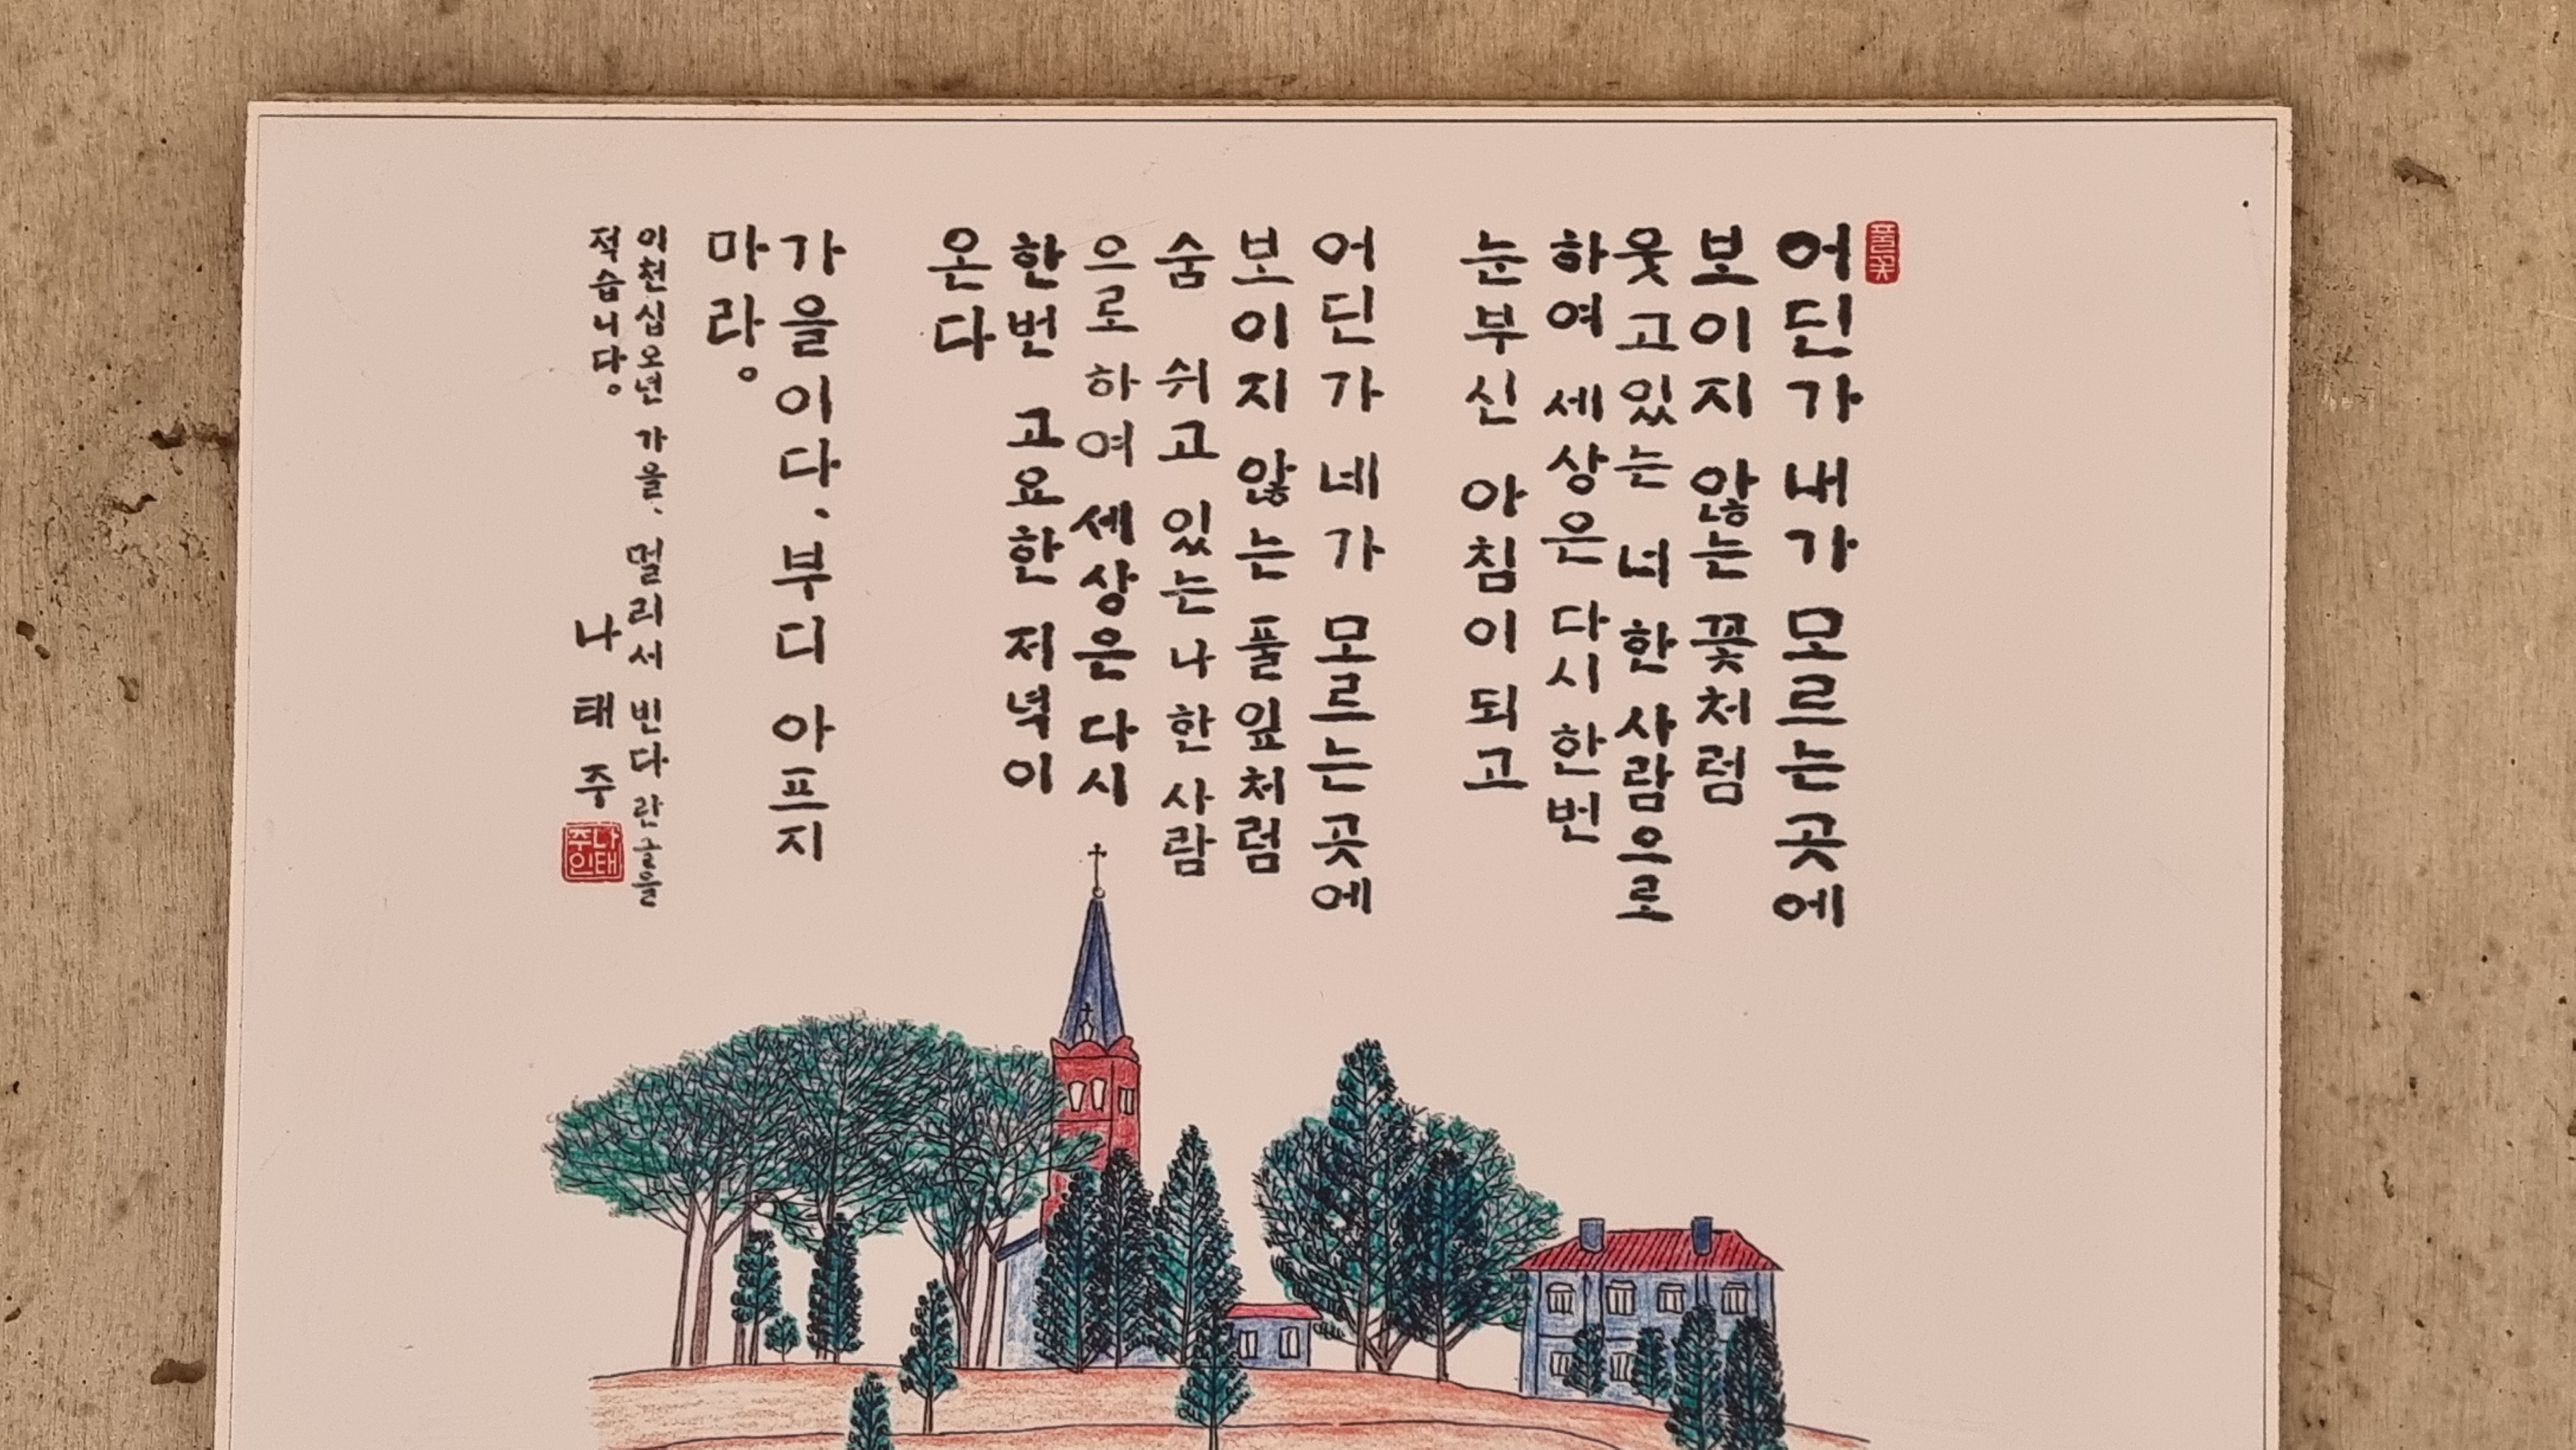 풀꽃
어딘가 내가 모르는 곳에
보이지 않는 꽃처럼
웃고 있는 너 한 사람으로
하여 세상은 다시 한번
눈부신 아침이 되고
어딘가 네가 모르는 곳에
보이지 않는 풀잎처럼
숨 쉬고 있는 나 한 사람
으로 하여 세상은 다시
한번 고요한 저녁이
온다
가을이다. 부디 아프지
마라。
이천십오년 가을. 멀리서 빈다란 글을
적습니다。 나태주
나태주인